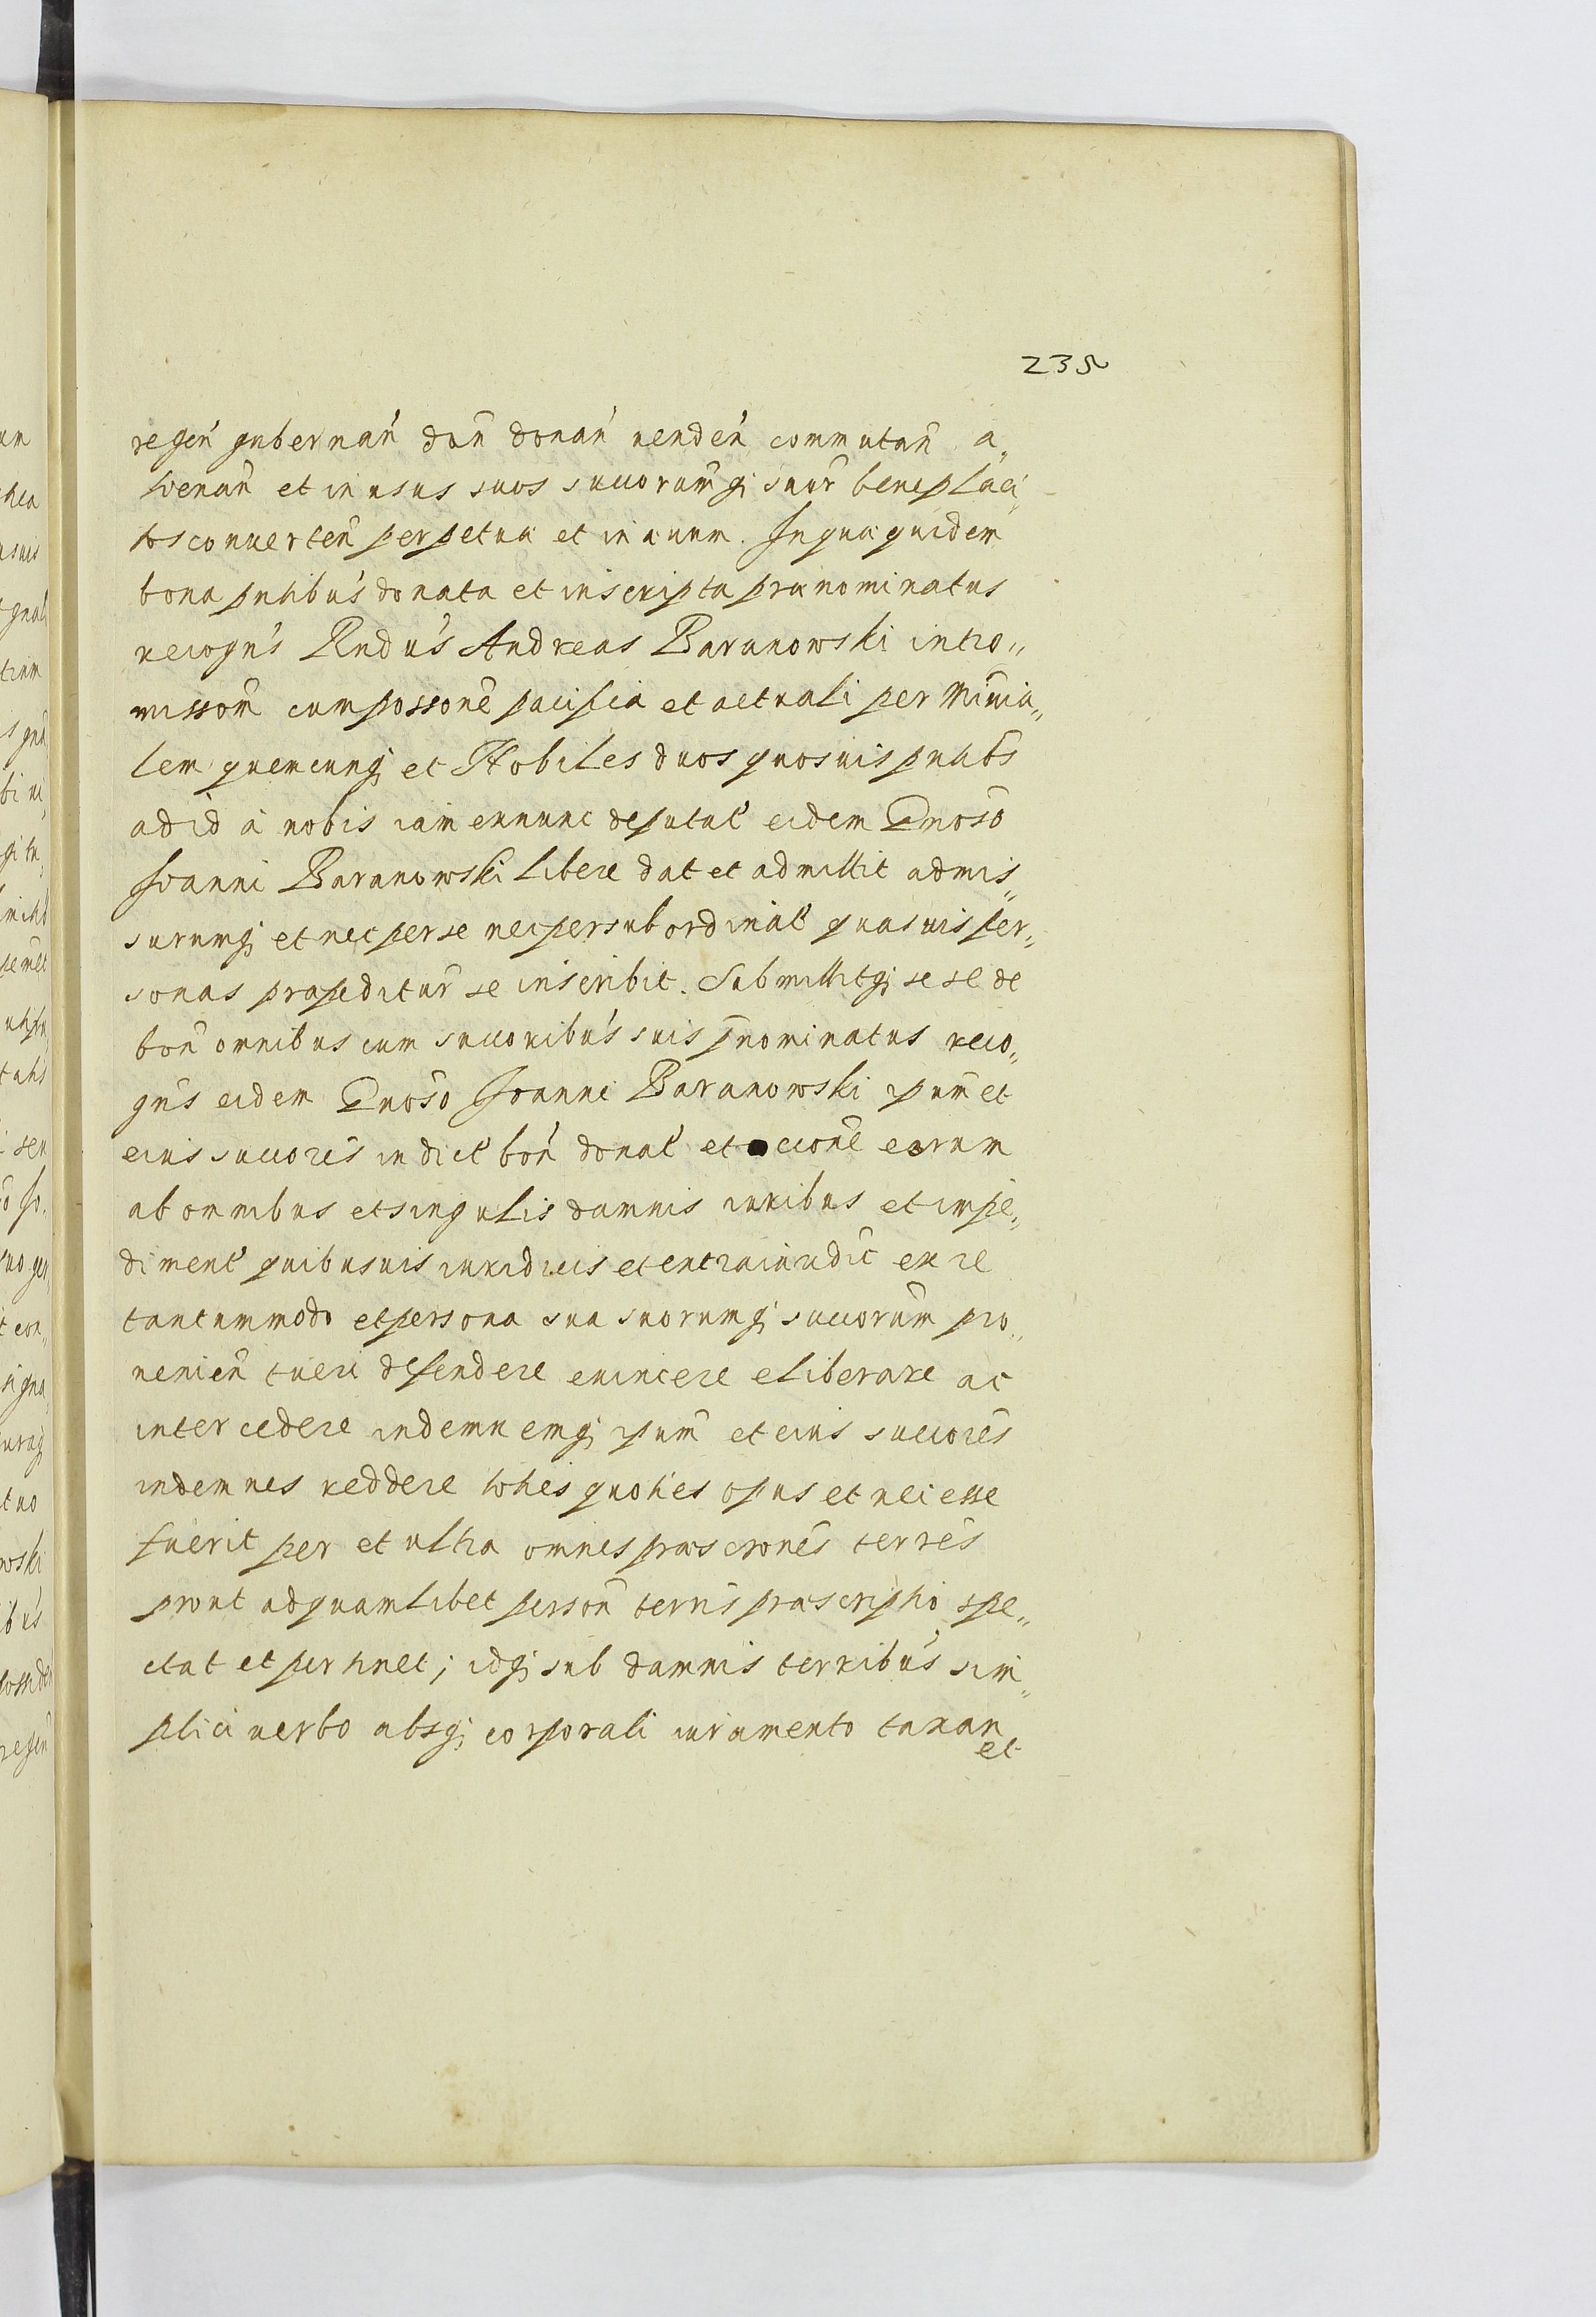 235
regen̄ gubernan̄ dan̄ donan̄ venden̄ commutan̄ a„
lienan̄ et in usus suos succorumq; suor̄ beneplaci„
tos converten̄ perpetua et in aeuum. In qua quidem
bona pntibus donata et inscripta praenominatus
recogns Rndus Andreas Baranowski intro„
misson̄ cum possone pacifica et actuali per Minia„
lem quemcunq; et Nobiles duos quosuis pntibs
ad id à nobis iam exnunc deputat eidem Gnoso
Joanni Baranowski libere dat et admittit admis„
surumq; et nec per se nec per subordinat quasuis per„
sonas praepeditur se inscribit. Submittitq; se se de
bon̄ omnibus cum succoribus suis pnominatus reco„
gns eidem Gnoso Joanni Baranowski ipum et
eius succores in dict bon̄ donat et occone eorum
ab omnibus et singulis damnis iuribus et impe„
diment quibusuis iuridicis et extraiudic ex re
tantummodo et persona sua suorumq; succorum pro„
venien̄ tueri defendere euincere eliberare ac
intercedere indemnemq; ipum et eius succores
indemnes reddere toties quoties opus et necesse
fuerit per et ultra omnes praescrones terres
prout ad quamlibet person̄ terris praescriptio spe„
ctat et pertinet; idq; sub damnis terribus sim„
plici verbo absq; corporali iuramento taxan
et